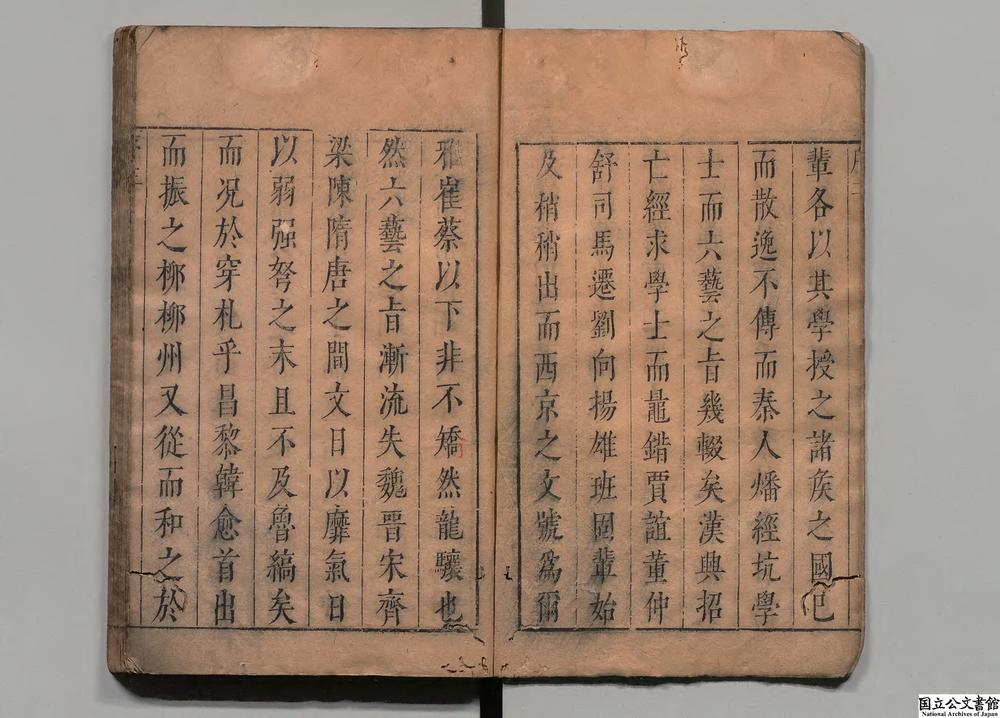 輩各以其學授之諸矦之國已
而散逸不傳而秦人燔經坑學
士而六藝之旨幾輟矣漢興招
亡經求學士而鼂錯賈誼董仲
舒司馬遷劉向揚雄班固輩始
及稍稍出而西京之文號爲爾
雅崔蔡以下非不矯然龍驤也
然六藝之旨漸流失魏晉宋齊
梁陳隋唐之間文日以靡氣日
以弱强弩之末且不及魯縞矣
而况於穿札乎昌黎韓愈首出
而振之桺桺州又從而和之於
国立公文書館
National Archives of Japan